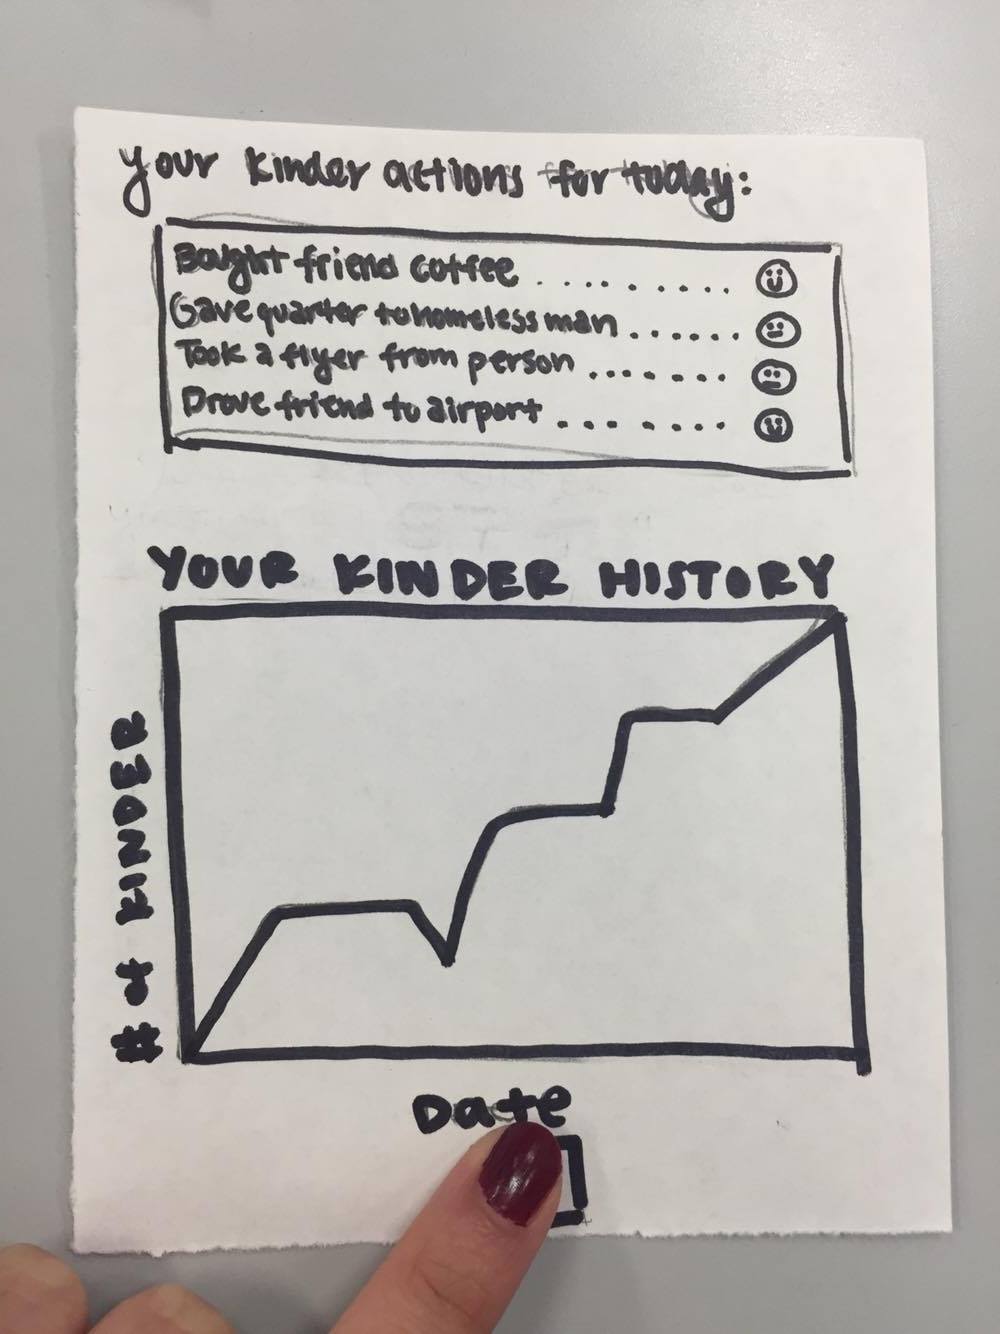 Your kinder actions for today:
Bought friend coffee ..........
Gave quarter to homeless man ......
Took a flyer from person .......
Drove friend to airport .......
YOUR KINDER HISTORY
# of KINDER
Date